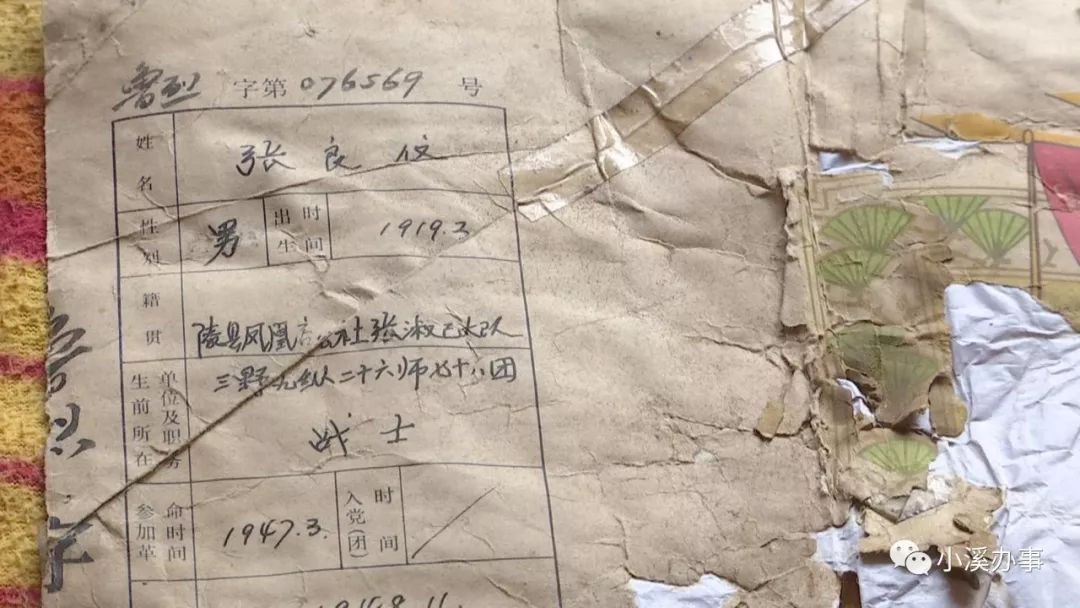 鲁烈 字第 076569 号
姓名 張良俊
性别 男 出生时间 1919.3
籍贯 陵县凤凰店公社张淑己大队
生前所在单位及职务 三野九纵二十六师七十八团
战士
参加革命时间 1947.3. 入党(团)时间 /
1948.11.
小溪办事